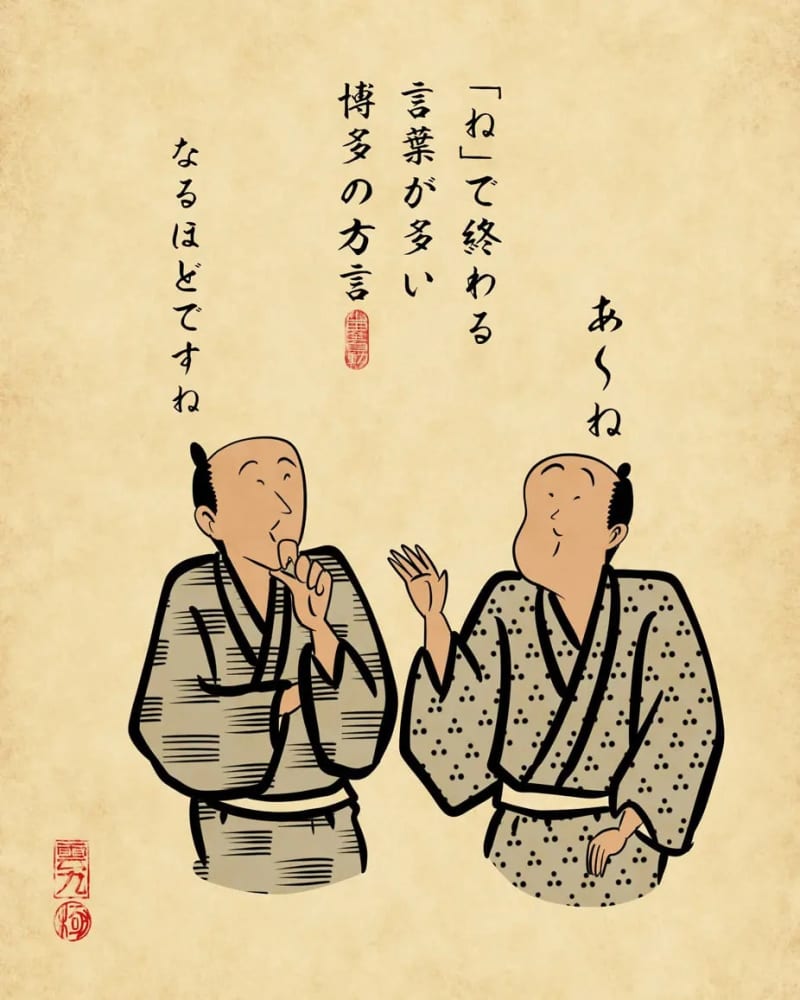 「ね」で終わる
言葉が多い
博多の方言
あ〜ね
なるほどですね